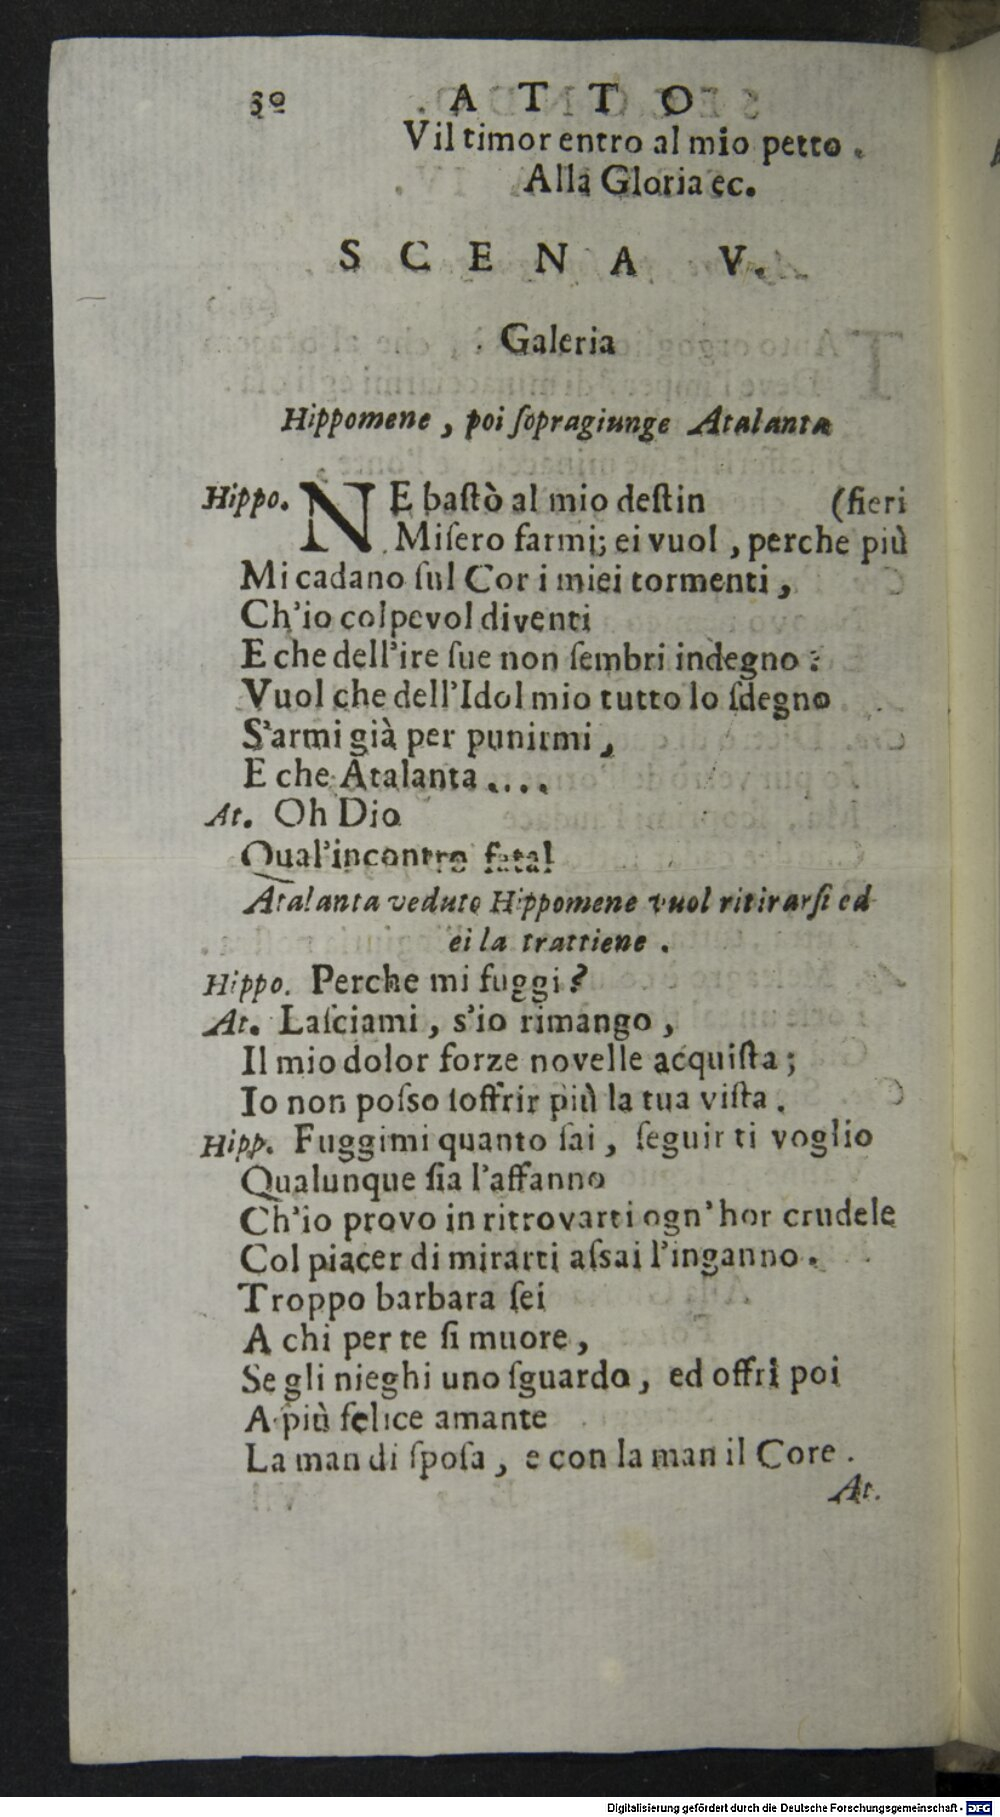 50 ATTO
Vil timor entro al mio petto.
Alla Gloria ec.
SCENA V.
Galeria
Hippomene, poi ſopragiunge Atalanta
Hippo. NE baſtò al mio deſtin (fieri
Miſero farmi; ei vuol, perche più
Mi cadano ſul Cor i miei tormenti,
Ch'io colpevol diventi
E che dell'ire ſue non ſembri indegno:
Vuol che dell'Idol mio tutto lo ſdegno
S'armi già per punirmi,
E che Atalanta....
At. Oh Dio
Qual'incontro fatal
Atalanta veduto Hippomene vuol ritirarſi ed
ei la trattiene.
Hippo. Perche mi fuggi?
At. Laſciami, s'io rimango,
Il mio dolor forze novelle acquiſta;
Io non poſso ſoffrir più la tua viſta.
Hipp. Fuggimi quanto ſai, ſeguir ti voglio
Qualunque ſia l'affanno
Ch'io provo in ritrovarti ogn'hor crudele
Col piacer di mirarti aſsai l'inganno.
Troppo barbara ſei
A chi per te ſi muore,
Se gli nieghi uno ſguardo, ed offri poi
A più felice amante
La man di ſpoſa, e con la man il Core.
At.
Digitalisierung gefördert durch die Deutsche Forschungsgemeinschaft - DFG